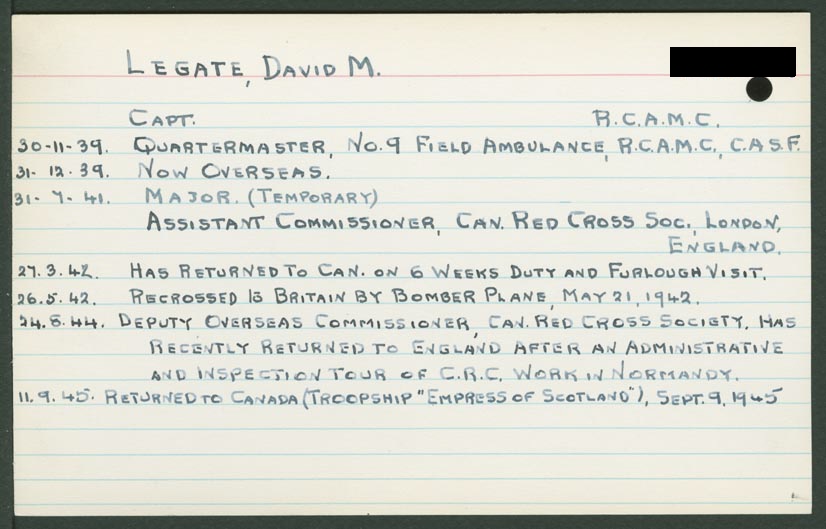 LEGATE, DAVID M.
CAPT. R.C.A.M.C.
30-11-39. QUARTERMASTER, No.9 FIELD AMBULANCE, R.C.A.M.C., C.A.S.F.
31-12-39. NOW OVERSEAS.
31-7-41. MAJOR. (TEMPORARY)
ASSISTANT COMMISSIONER, CAN. RED CROSS SOC., LONDON,
ENGLAND.
27.3.42. HAS RETURNED TO CAN. ON 6 WEEKS DUTY AND FURLOUGH VISIT.
26.5.42. RECROSSED TO BRITAIN BY BOMBER PLANE, MAY 21, 1942.
24.8.44. DEPUTY OVERSEAS COMMISSIONER, CAN. RED CROSS SOCIETY. HAS
RECENTLY RETURNED TO ENGLAND AFTER AN ADMINISTRATIVE
AND INSPECTION TOUR OF C.R.C. WORK IN NORMANDY.
11.9.45. RETURNED TO CANADA (TROOPSHIP "EMPRESS OF SCOTLAND"), SEPT. 9, 1945